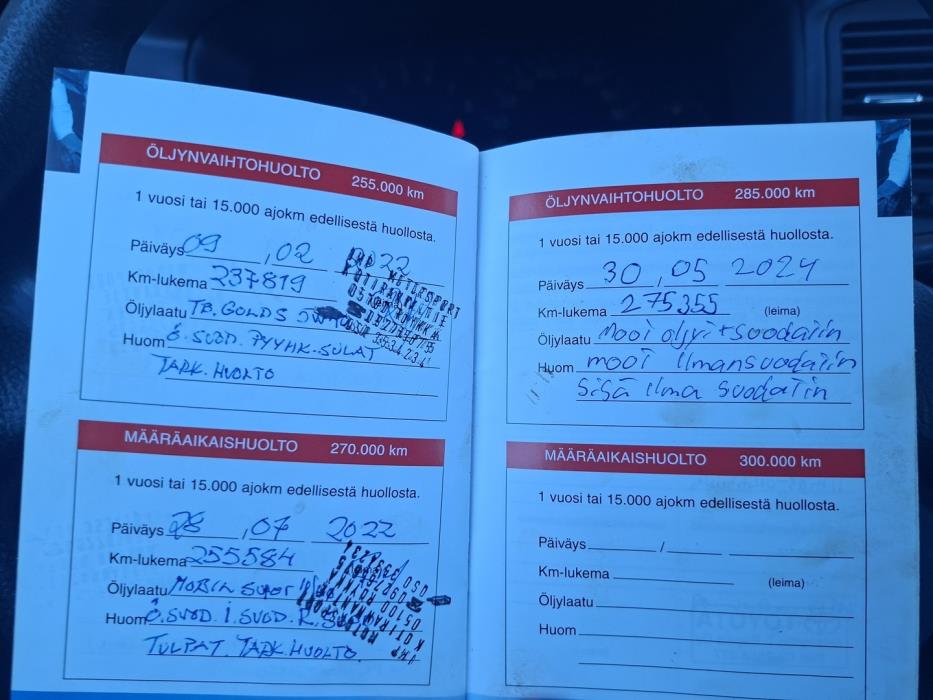 ÖLJYNVAIHTOHUOLTO 255.000 km
1 vuosi tai 15.000 ajokm edellisestä huollosta.
Päiväys 09 , 02 2022
Km-lukema 237819
Öljylaatu TB. GOLDS
Huom Ö. SUOD. PYYHK-SULAT
TARK. HUOLTO
MÄÄRÄAIKAISHUOLTO 270.000 km
1 vuosi tai 15.000 ajokm edellisestä huollosta.
Päiväys 28 , 07 2022
Km-lukema 255584
Öljylaatu MOBIL SUPER
Huom Ö. SUOD. I. SUOD. R.
TULPAT. TARK. HUOLTO.
ÖLJYNVAIHTOHUOLTO 285.000 km
1 vuosi tai 15.000 ajokm edellisestä huollosta.
Päiväys 30 , 05 2024
Km-lukema 275355 (leima)
Öljylaatu mooi öljyi + suodatin
Huom mooi ilmansuodatin
sisä ilma suodatin
MÄÄRÄAIKAISHUOLTO 300.000 km
1 vuosi tai 15.000 ajokm edellisestä huollosta.
Päiväys /
Km-lukema (leima)
Öljylaatu
Huom